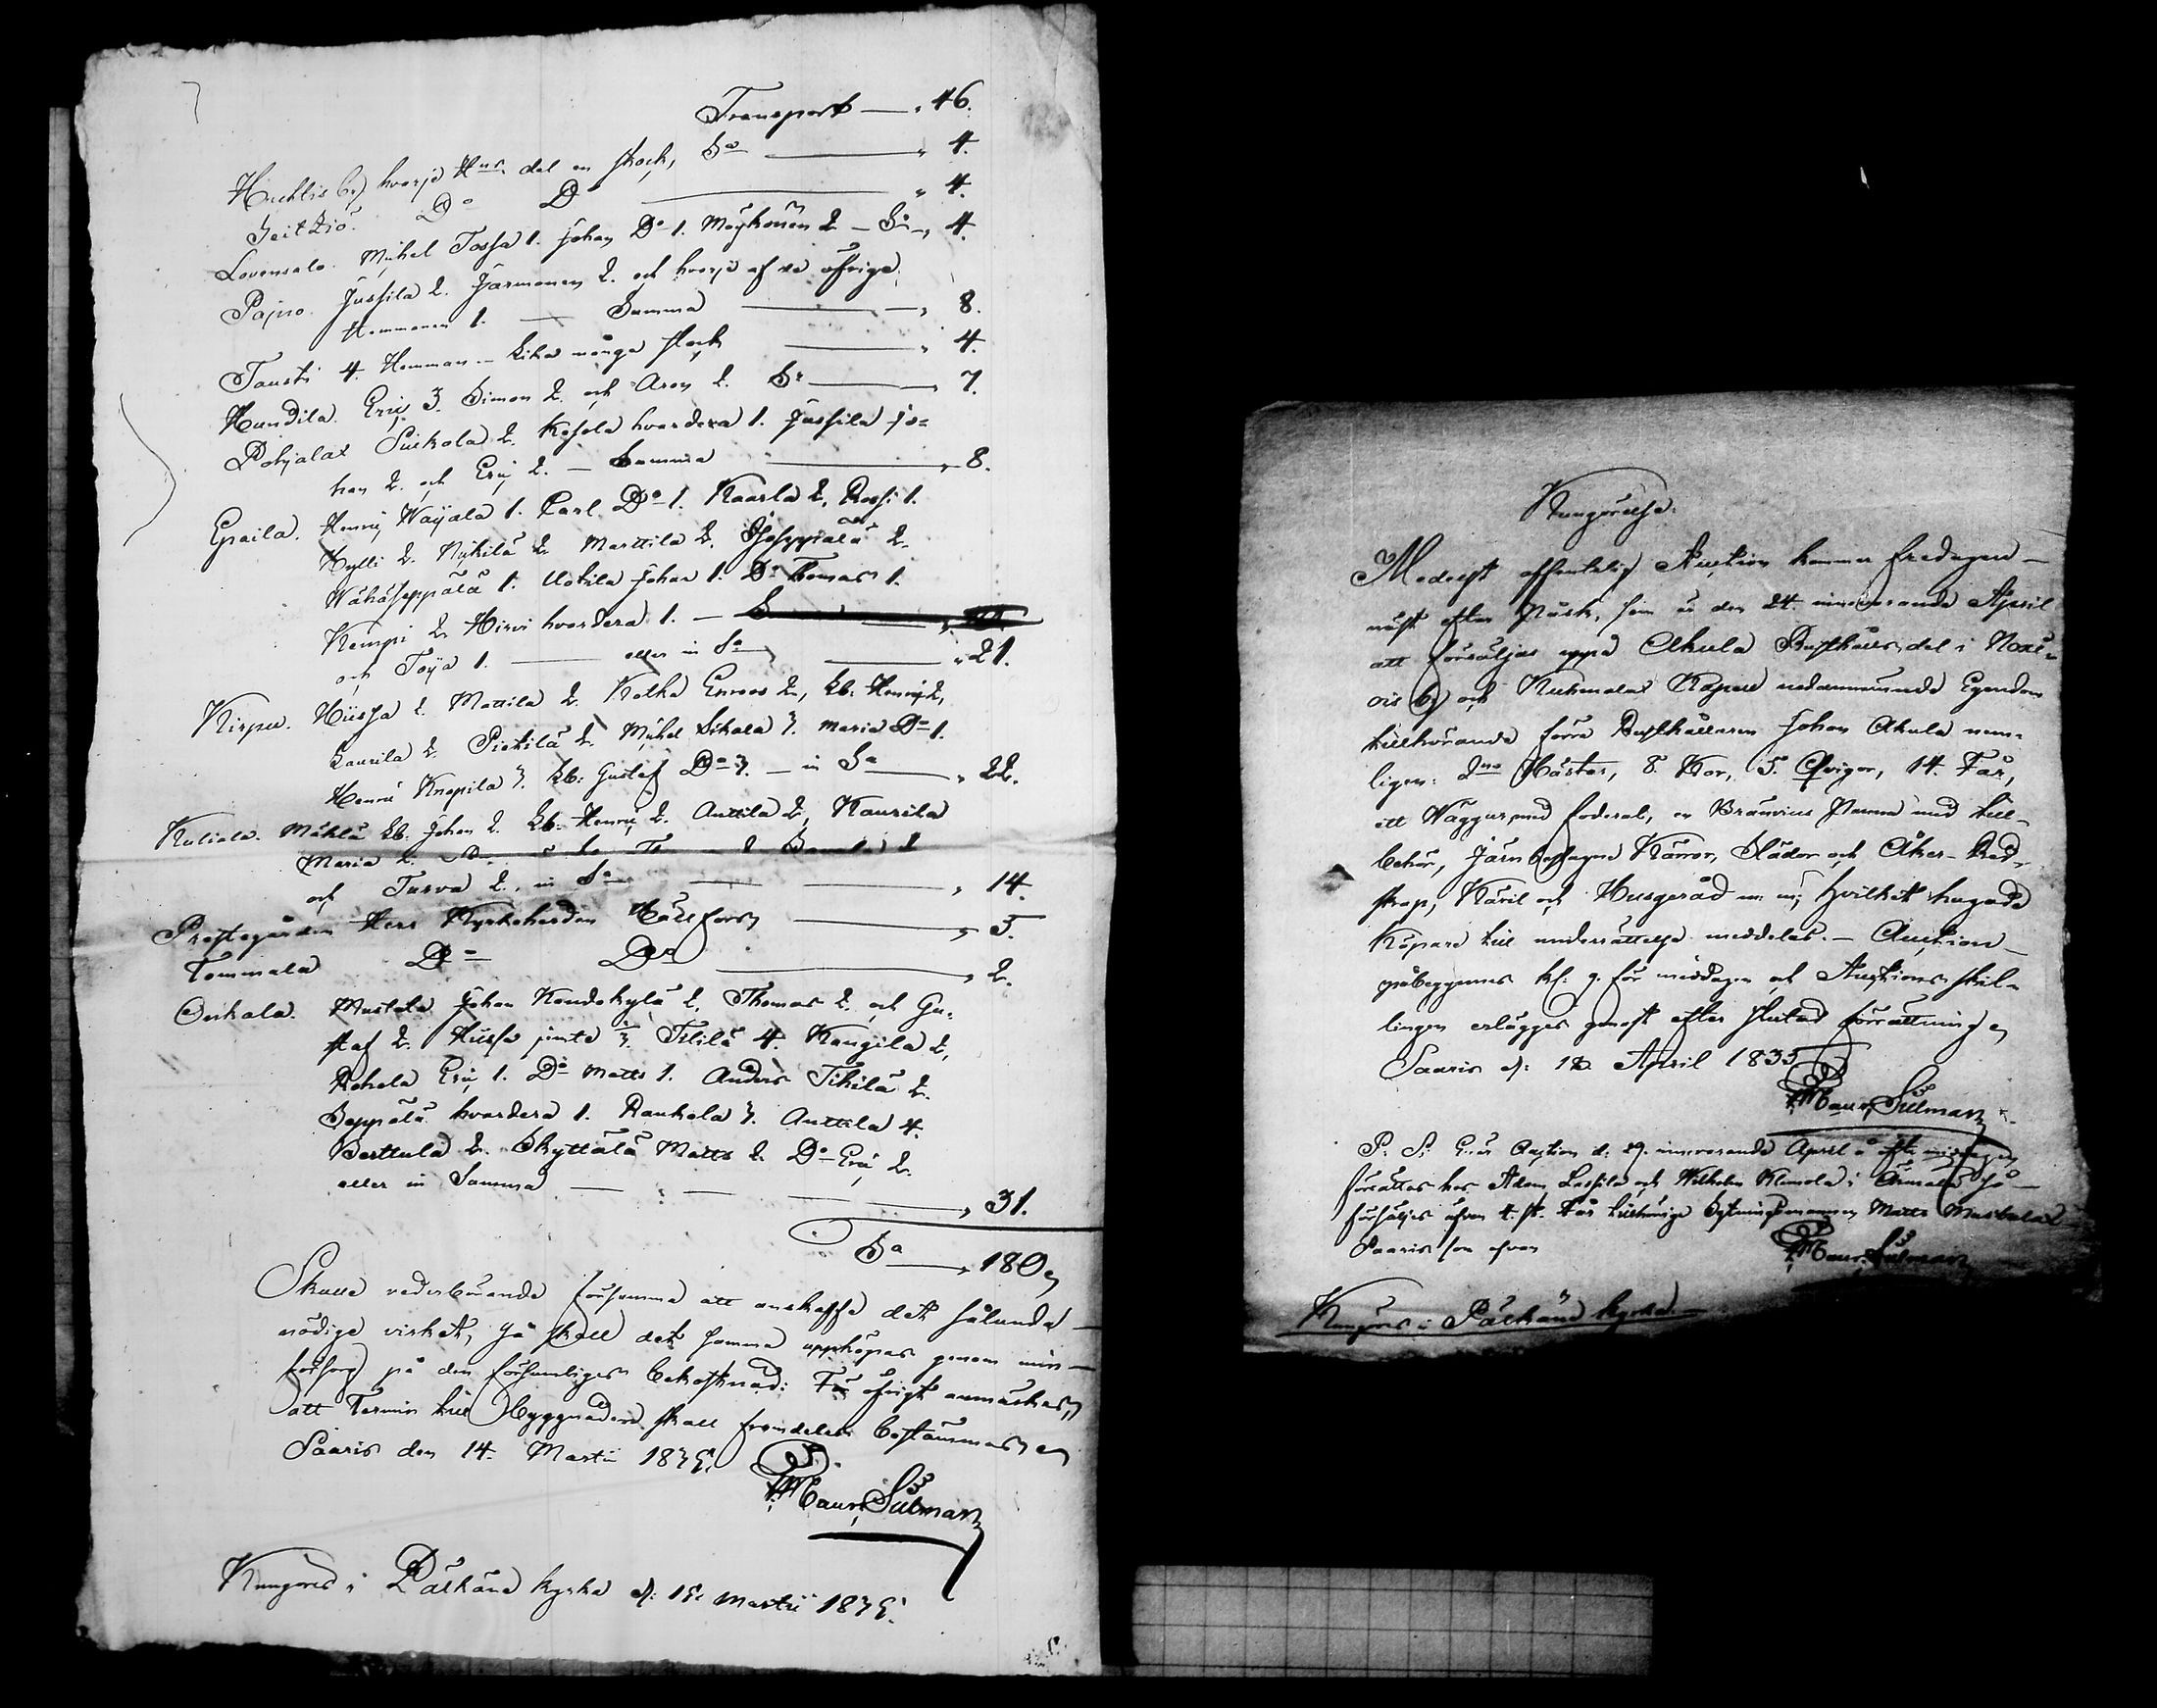 Transport — „ 46.
Huchtis by hvarje Hns del en stock, Sa — „ 4.
Seitziö. Do Do — „ 4.
Lovensalo. Michel Tossa 1. Johan Do 1. Möykönen 2 — Sa „ 4.
Pajno. Jussila 2. Jarmonen 2. och hvarje af de öfriga
Hemmanen 1. — Summa — „ 8.
Tausti 4. Hemman — lika många stock — „ 4.
Hundila. Eric 3. Simon 2. och Aron 2. Sa — „ 7.
Pohjalax Suikola 2. Kesola hvardera 1. Jussila Jo-
han 2. och Eric 2. — Summa — „ 8.
Epaila. Henric Wäjälä 1. Carl Do 1. Kaarla 2, Rossi 1.
Hylli 2. Mickilä 2. Marttila 2. Isoseppälä 2.
Wähäseppälä 1. Uotila Johan 1. Do Thomas 1.
Kempi 2. Hirvi hvardera 1. —
och Töyä 1. — eller in Sa — „ 21.
Kirpu. Hiissa 2. Mattila 2. Kolka Enroos 2, Lb: Henric 2,
Laurila 2. Pietilä 2. Michel Sikala 3. Maria Do 1.
Henric Knapila 3. Lb: Gustaf Do 3. — in Sa — „ 22.
Kuliala. Mählä Lb. Johan 2. Lb. Henric 2. Anttila 2, Kaurila
Maria 2.
och Turva 2., in Sa — „ 14.
Prestegården Herr Kyrkoherden Hällfors — „ 5.
Tommala Do Do — „ 2.
Onkala. Mustala Johan Kondokylä 2, Thomas 2. och Gu-
staf 2. Hiissa 3. Tililä 4. Kangila 2,
Rohola Eric 1. Do Matts 1. Anders Tihilä 2.
Seppälä hvardera 1. Rankala 3. Anttila 4.
Perttula 2. Skyttälä Matts 2. Do Eric 2.
eller in Summa — „ 31.
Sa — „ 180,
Skulle vederbörande försumma att anskaffa det sålunda
nödige virket, så skall det samma uppköpas genom min
försorg på den försumliges bekostnad: För öfrigt anmärkes,
att Termin till byggnaden skall framdeles bestämmas,
Saaris den 14. Martii 1835.
Maur. Silman
Kungöres i Pälkäne kyrka d: 15. Martii 1835.
Kungörelse.
Medelst offentelig Auction kommer fredagen
näst efter Påsk, som är den 24. innevarande April
att försäljas uppå Ahula Rusthålls del i
by och Kuhmalax Kapell nedannämnde Egendom
tillhörande förre Rusthållaren Johan Ahula nem-
ligen: 2ne Hästar, 8. Kor, 5. Qvigor, 14. Får,
ett Väggur med foderal, en Bränvins Panna med till-
behör, järnbeslagne Kärror, Slädor och Åker-Red-
skap, Käril och Husgeråd m: m; hvilket hugade
Köpare till underrättelse meddelas. — Auction
påbegynnes kl: 9. för middagen och Auctions skil-
lingen erlägges genast efter slutad förrättning,
Saaris d: 18. April 1835
Maur. Silman
P. S. Auction d: 29. innevarande April efter middagen
förrättas hos Adam Lassila och Wilhelm Klemola i så
försäljes äfven 4. st. får tillhörige Matts Mustala
Saaris som ofvan
Maur. Silman
Kungöres i Pälkäne kyrka. —